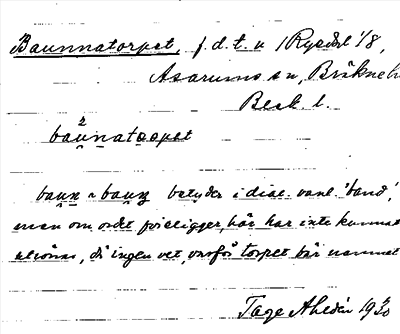 Baunnatorpet, f. d. t. u. Ryedal 1/8,
Asarums sn, Bräkne h.
Blek. l.
baunatorpet
baun ~ baun betyder i dial. vanl. 'band',
men om ordet föreligger här har inte kunnat
utrönas, då ingen vet varför torpet bär namnet
Tage Ahldén 1930